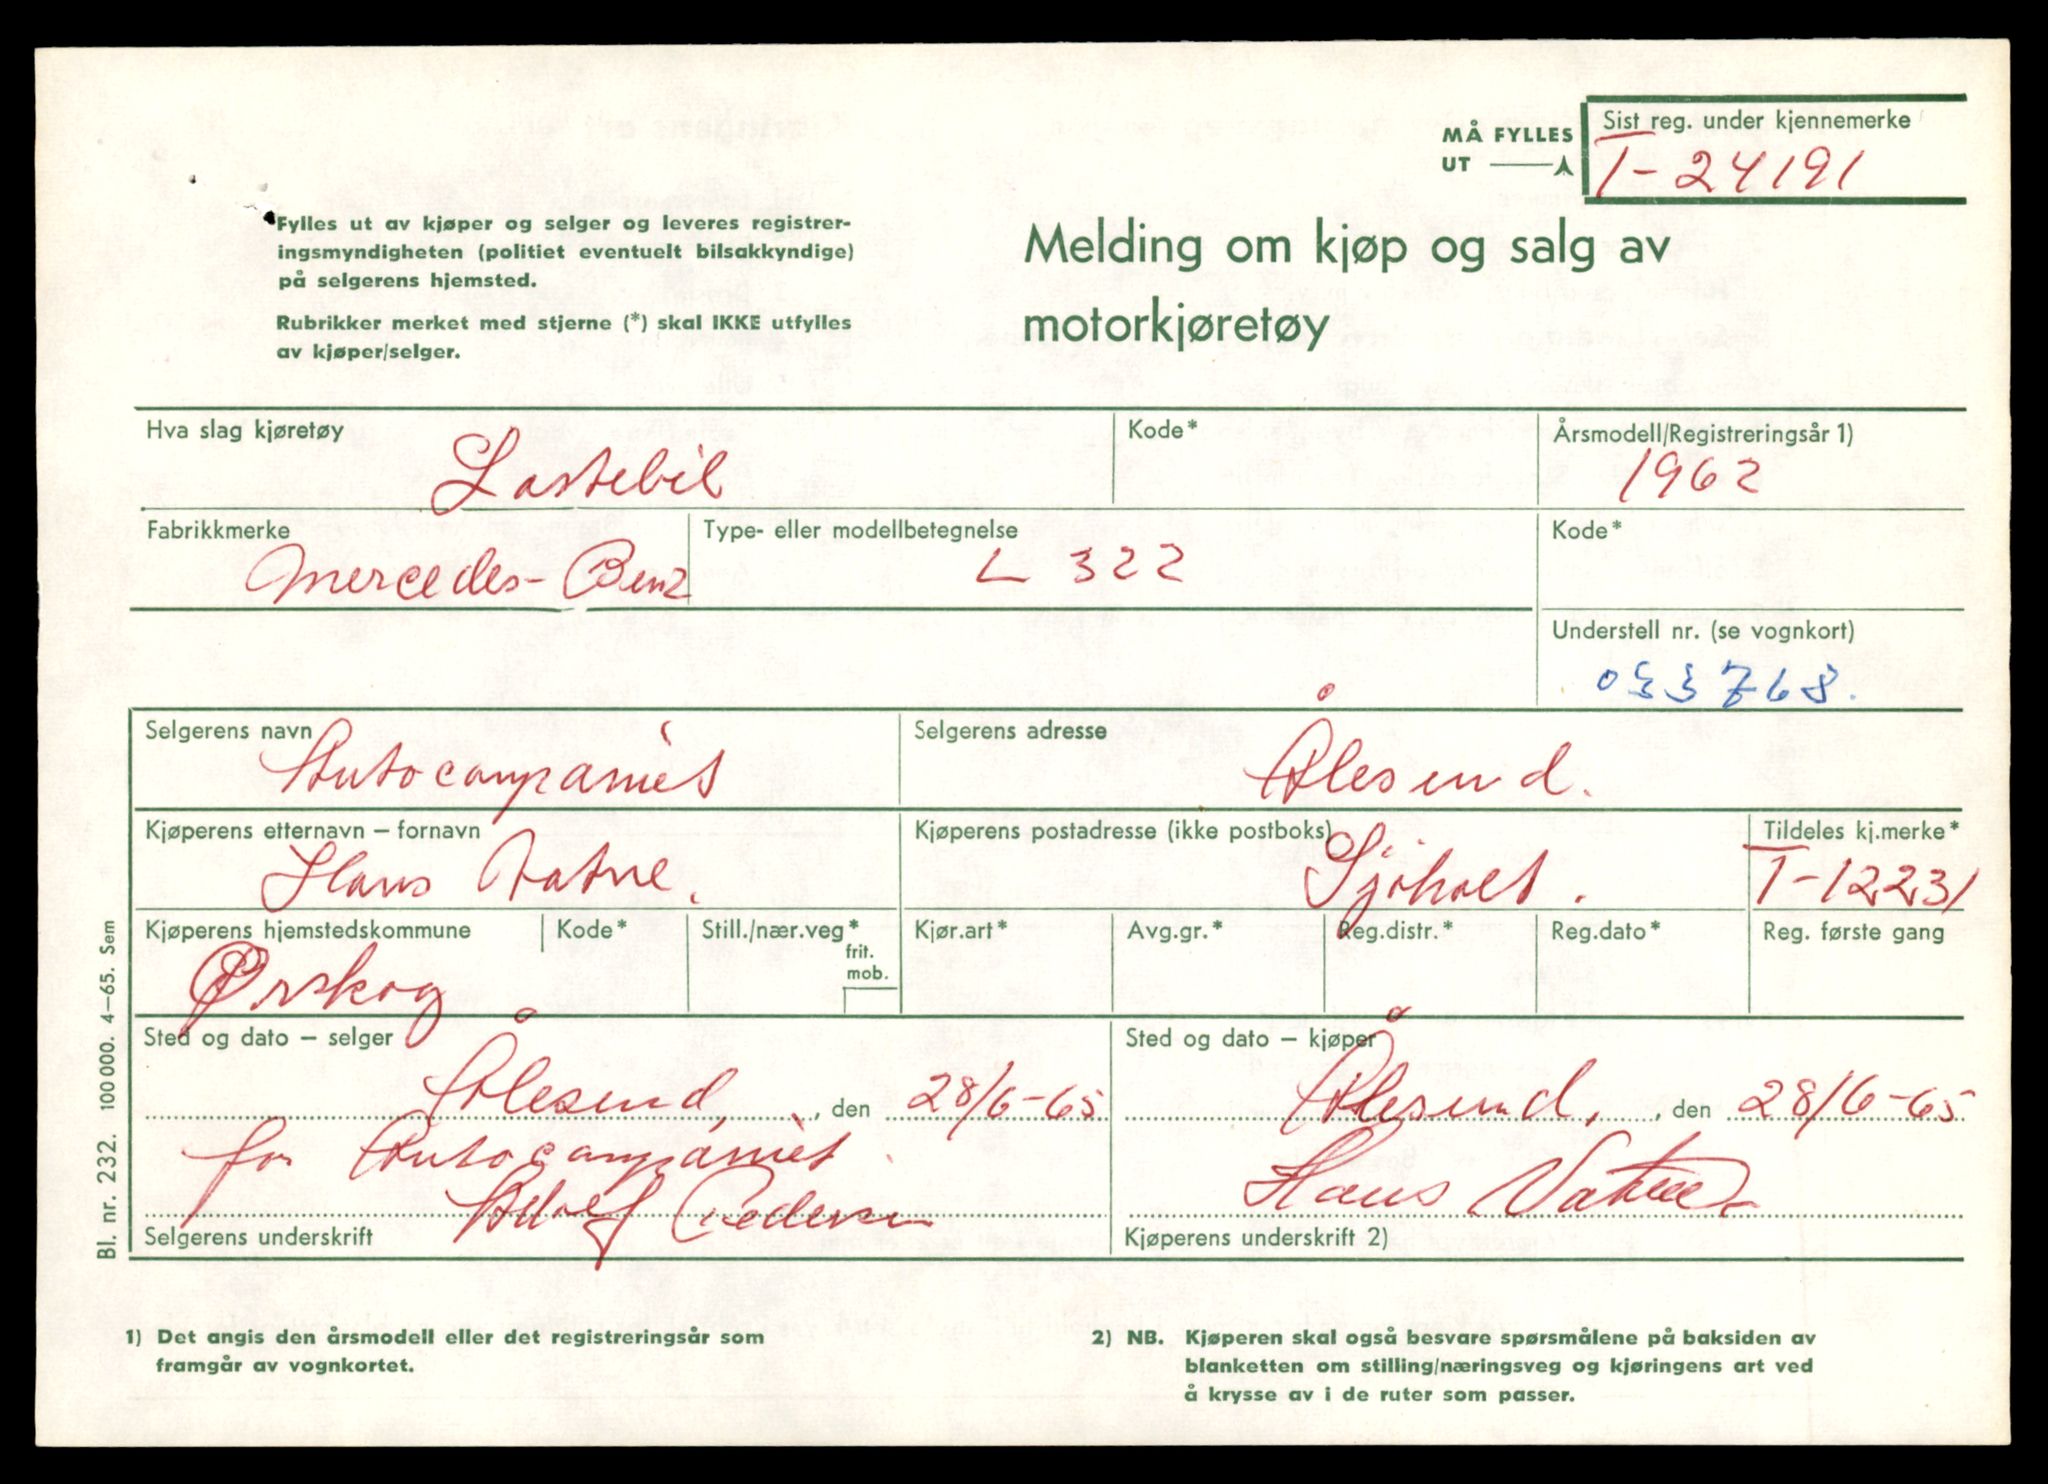 MÅ FYLLES
UT
Sist reg. under kjennemerke
T-24191
Fylles ut av kjøper og selger og leveres registrer-
ingsmyndigheten (politiet eventuelt bilsakkyndige)
på selgerens hjemsted.
Rubrikker merket med stjerne (*) skal IKKE utfylles
av kjøper/selger.
Melding om kjøp og salg av
motorkjøretøy
Hva slag kjøretøy
Lastebil
Kode*
Årsmodell/Registreringsår 1)
1962
Fabrikkmerke
Mercedes-Benz
Type- eller modellbetegnelse
L 322
Kode*
Understell nr. (se vognkort)
033768.
Selgerens navn
Autocompaniet
Selgerens adresse
Ålesund.
Kjøperens etternavn – fornavn
Hans Vatne.
Kjøperens postadresse (ikke postboks)
Sjøholt.
Tildeles kj.merke*
T-12231
Kjøperens hjemstedskommune
Ørskog
Kode*
Still./nær.veg*
frit.
mob.
Kjør.art*
Avg.gr.*
Reg.distr.*
Reg.dato*
Reg. første gang
Sted og dato – selger
Ålesund, den 28/6-65
for Autocompaniet
Adolf Pedersen
Selgerens underskrift
Sted og dato – kjøper
Ålesund, den 28/6-65
Hans Vatne
Kjøperens underskrift 2)
Bl. nr. 232. 100 000. 4–65. Sem
1) Det angis den årsmodell eller det registreringsår som
framgår av vognkortet.
2) NB. Kjøperen skal også besvare spørsmålene på baksiden av
blanketten om stilling/næringsveg og kjøringens art ved
å krysse av i de ruter som passer.